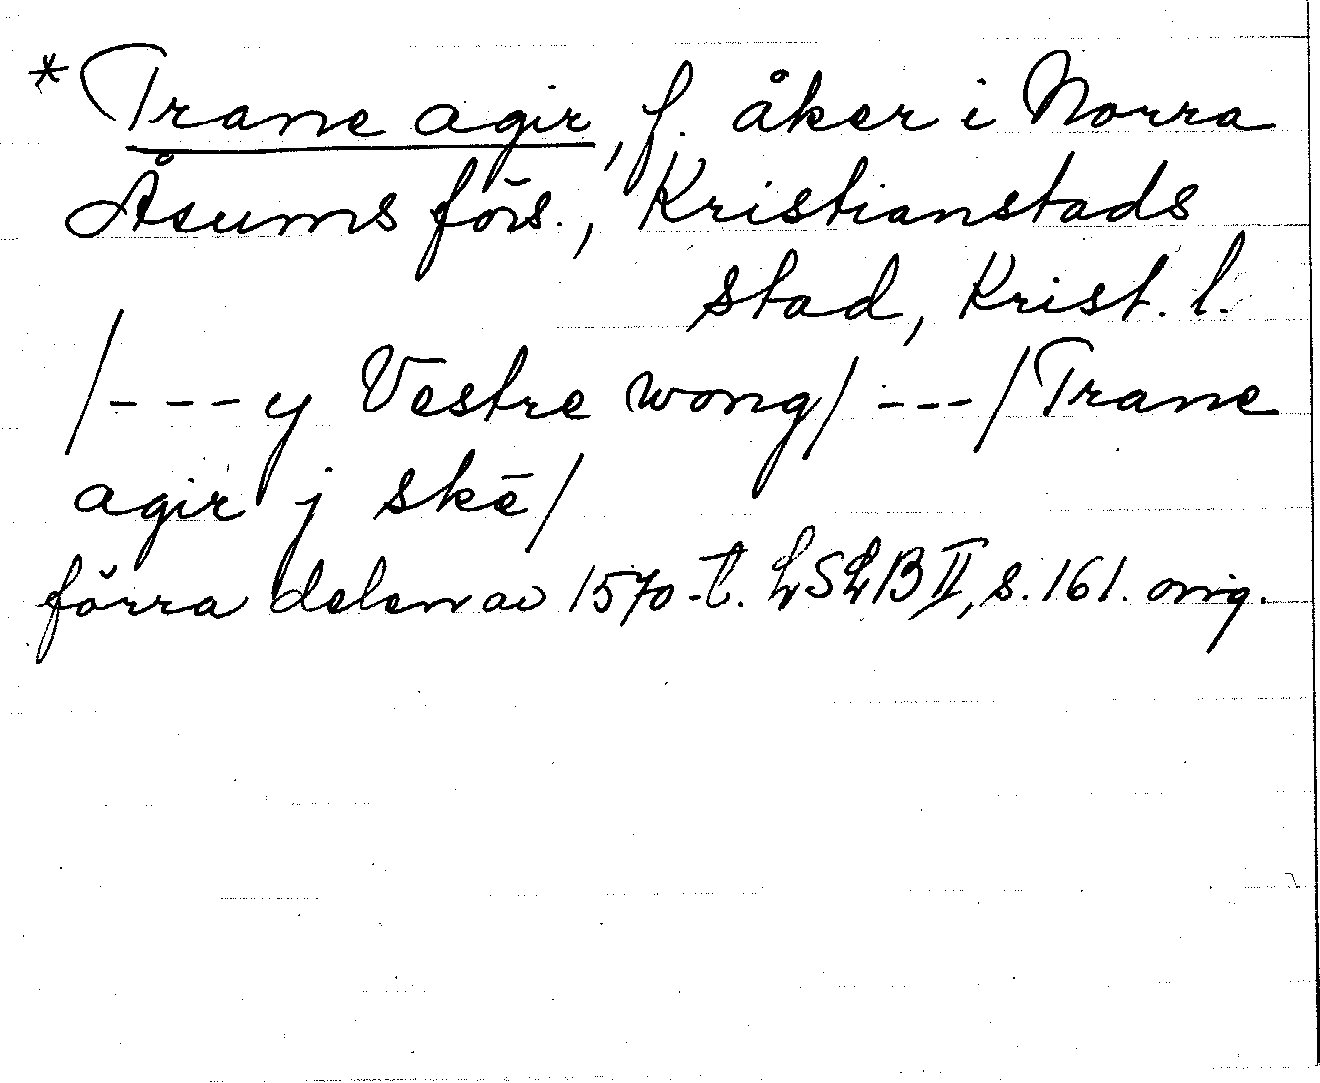 * Trane agir, f. åker i Norra
Åsums förs., Kristianstads
stad, Krist. l.
/---y Vestre wong/ ---/Trane
agir j skē/
förra delen av 1570-t. LSLB II, s. 161. orig.